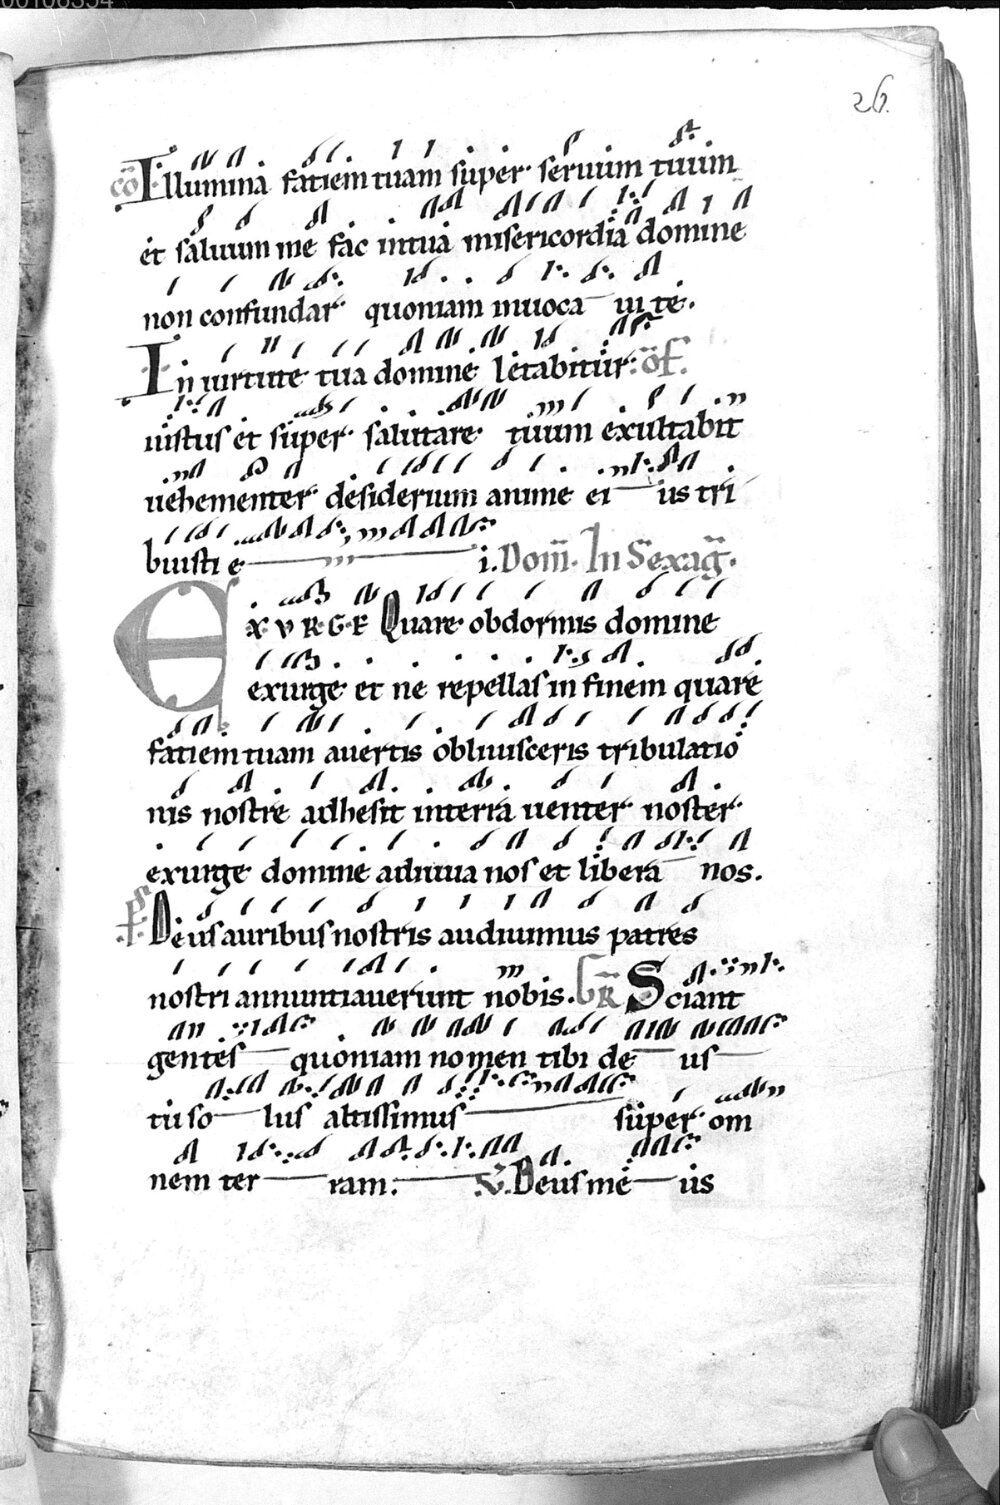 26.
co Illumina fatiem tuam super servum tuum
et salvum me fac in tua misericordia domine
non confundar quoniam invoca vi te.
In virtute tua domine letabitur: of.
iustus et super salutare tuum exultabit
vehementer desiderium anime ei us tri
buisti e i. Dom. In Sexag.
EXVRGE Quare obdormis domine
exurge et ne repellas in finem quare
fatiem tuam avertis oblivisceris tribulatio
nis nostre adhesit in terra venter noster
exurge domine adiuva nos et libera nos.
Ps Deus auribus nostris audivimus patres
nostri annuntiaverunt nobis. GR Sciant
gentes quoniam nomen tibi de us
tu so lus altissimus super om
nem ter ram. V. Deus me us